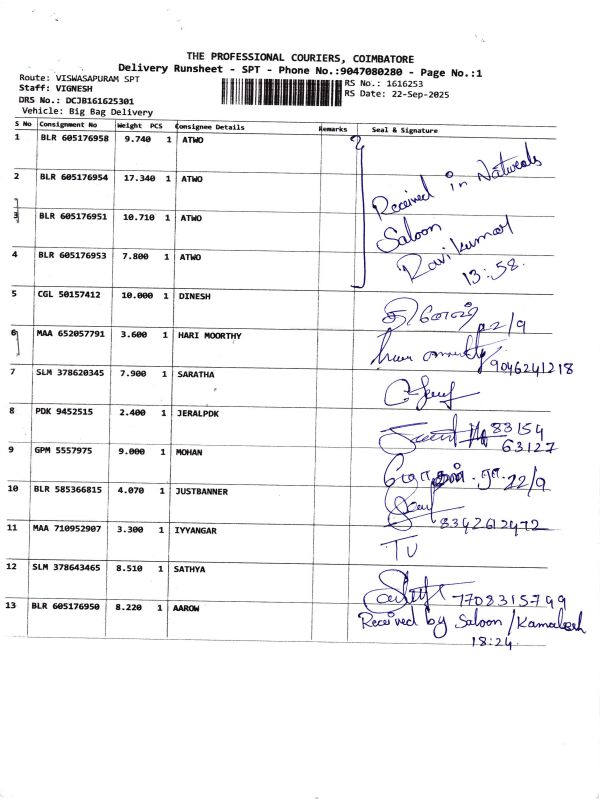 THE PROFESSIONAL COURIERS, COIMBATORE
Delivery Runsheet - SPT - Phone No.:9047080280 - Page No.:1
Route: VISWASAPURAM SPT
RS No.: 1616253
Staff: VIGNESH
RS Date: 22-Sep-2025
DRS No.: DCJB161625301
Vehicle: Big Bag Delivery
S No Consignment No Weight PCS Consignee Details Remarks Seal & Signature
1 BLR 605176958 9.740 1 ATWO
2 BLR 605176954 17.340 1 ATWO
Received in Naturals
3 BLR 605176951 10.710 1 ATWO
Saloon
4 BLR 605176953 7.800 1 ATWO
Ravikumar
13:58
5 CGL 50157412 10.000 1 DINESH
22/9
6 MAA 652057791 3.600 1 HARI MOORTHY
9046241218
7 SLM 378620345 7.900 1 SARATHA
8 PDK 9452515 2.400 1 JERALPDK
83154
63127
9 GPM 5557975 9.000 1 MOHAN
22/9
10 BLR 585366815 4.070 1 JUSTBANNER
8342612472
11 MAA 710952907 3.300 1 IYYANGAR
12 SLM 378643465 8.510 1 SATHYA
7708315799
13 BLR 605176950 8.220 1 AAROW
Received by Saloon / Kamalesh
18:24